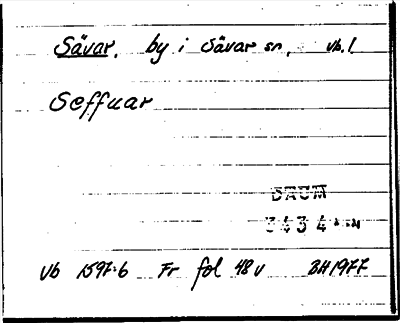 Sävar. by i Sävar sn. vb. l.
Seffuar
DAUM
3434
Vb 1597:6 Fr fol 48 v BH 1977